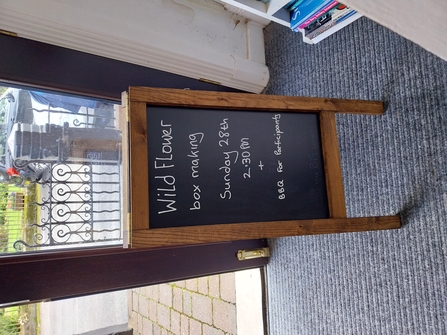 Wild Flower
box making
Sunday 28th
2-30PM
+
BBQ For Participants